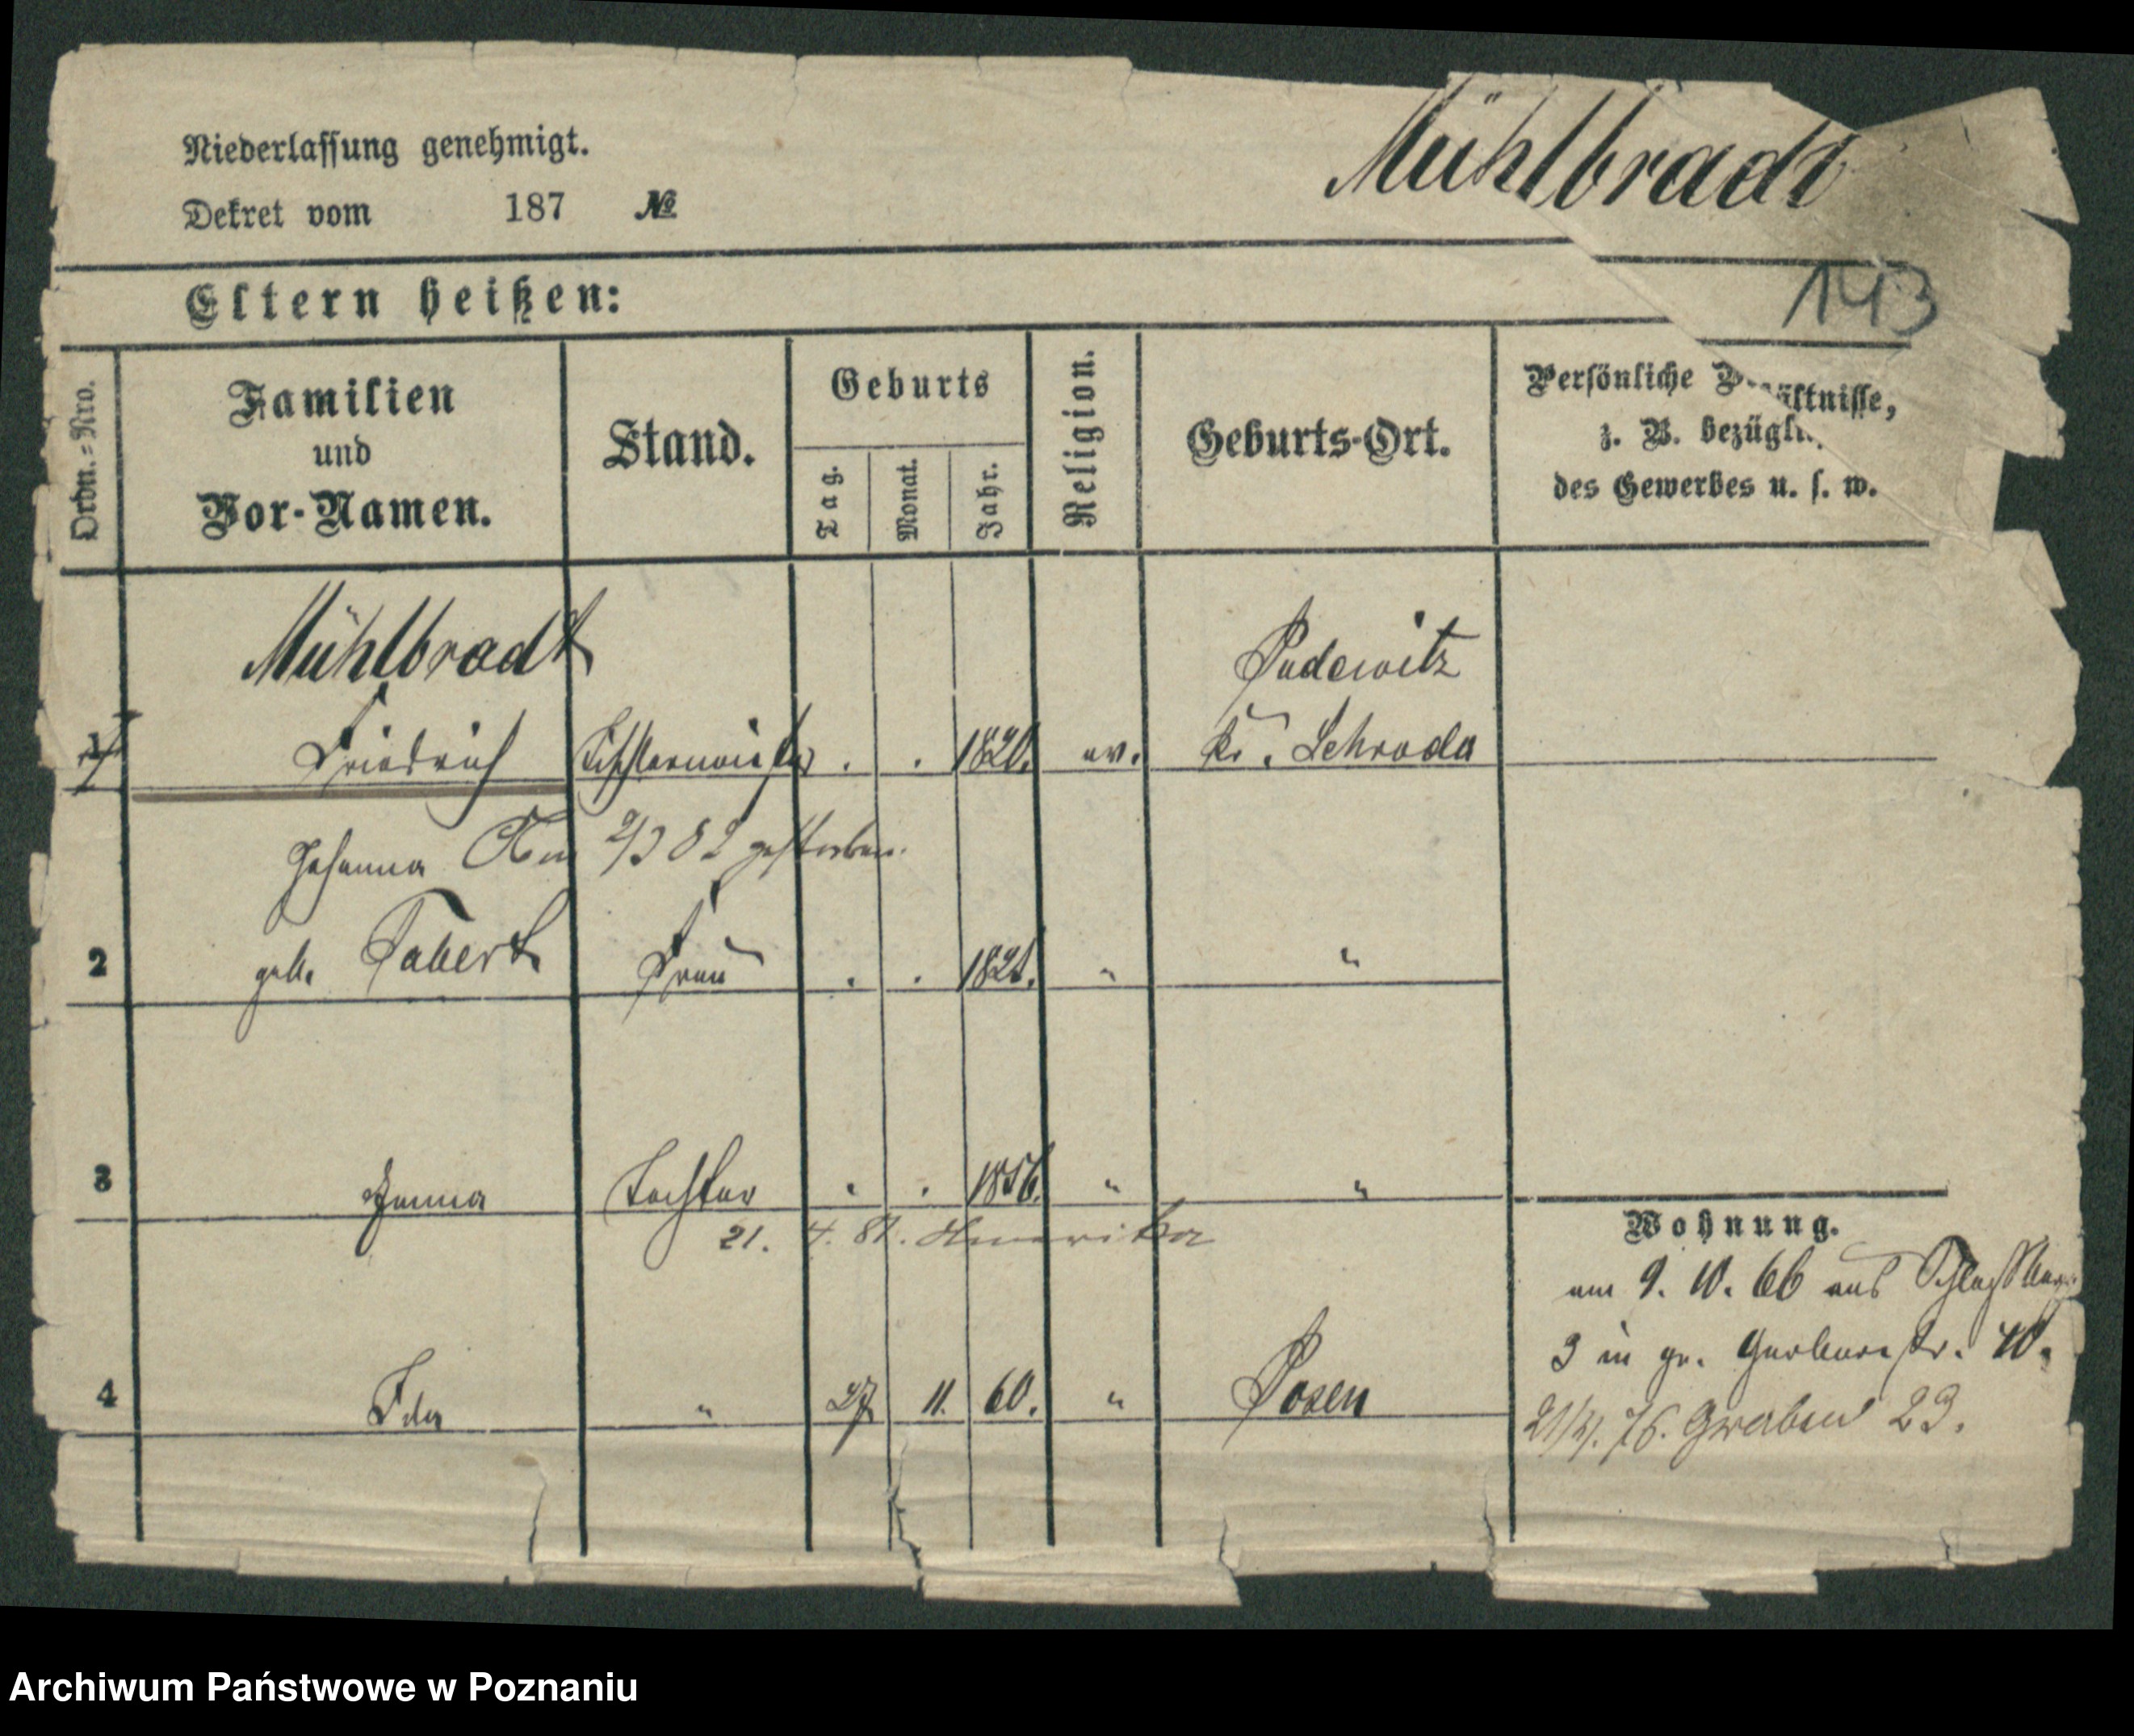 Niederlassung genehmigt.
Dekret vom 187 №
Mühlbradt
143
Eltern heißen:
Ordn.-Nro.
Familien
und
Vor-Namen.
Stand.
Geburts
Tag.
Monat.
Jahr.
Religion.
Geburts-Ort.
Persönliche
z. B.
des Gewerbes u. s. w.
Mühlbradt
Pudewitz
1 Friedrich Tischlermeister . . 1820. ev. Kr. Schroda
Johanna Am 2/3 82 gestorben.
2 geb. Tabert Frau . . 1821. " "
3 Emma Tochter . . 1856. " "
21. 4. 81. Amerika
4 Ida " 27 11. 60. " Posen
Wohnung.
am 9. 10. 66 aus
3 in gr. Gerberstr. 40.
Graben 23.
Archiwum Państwowe w Poznaniu